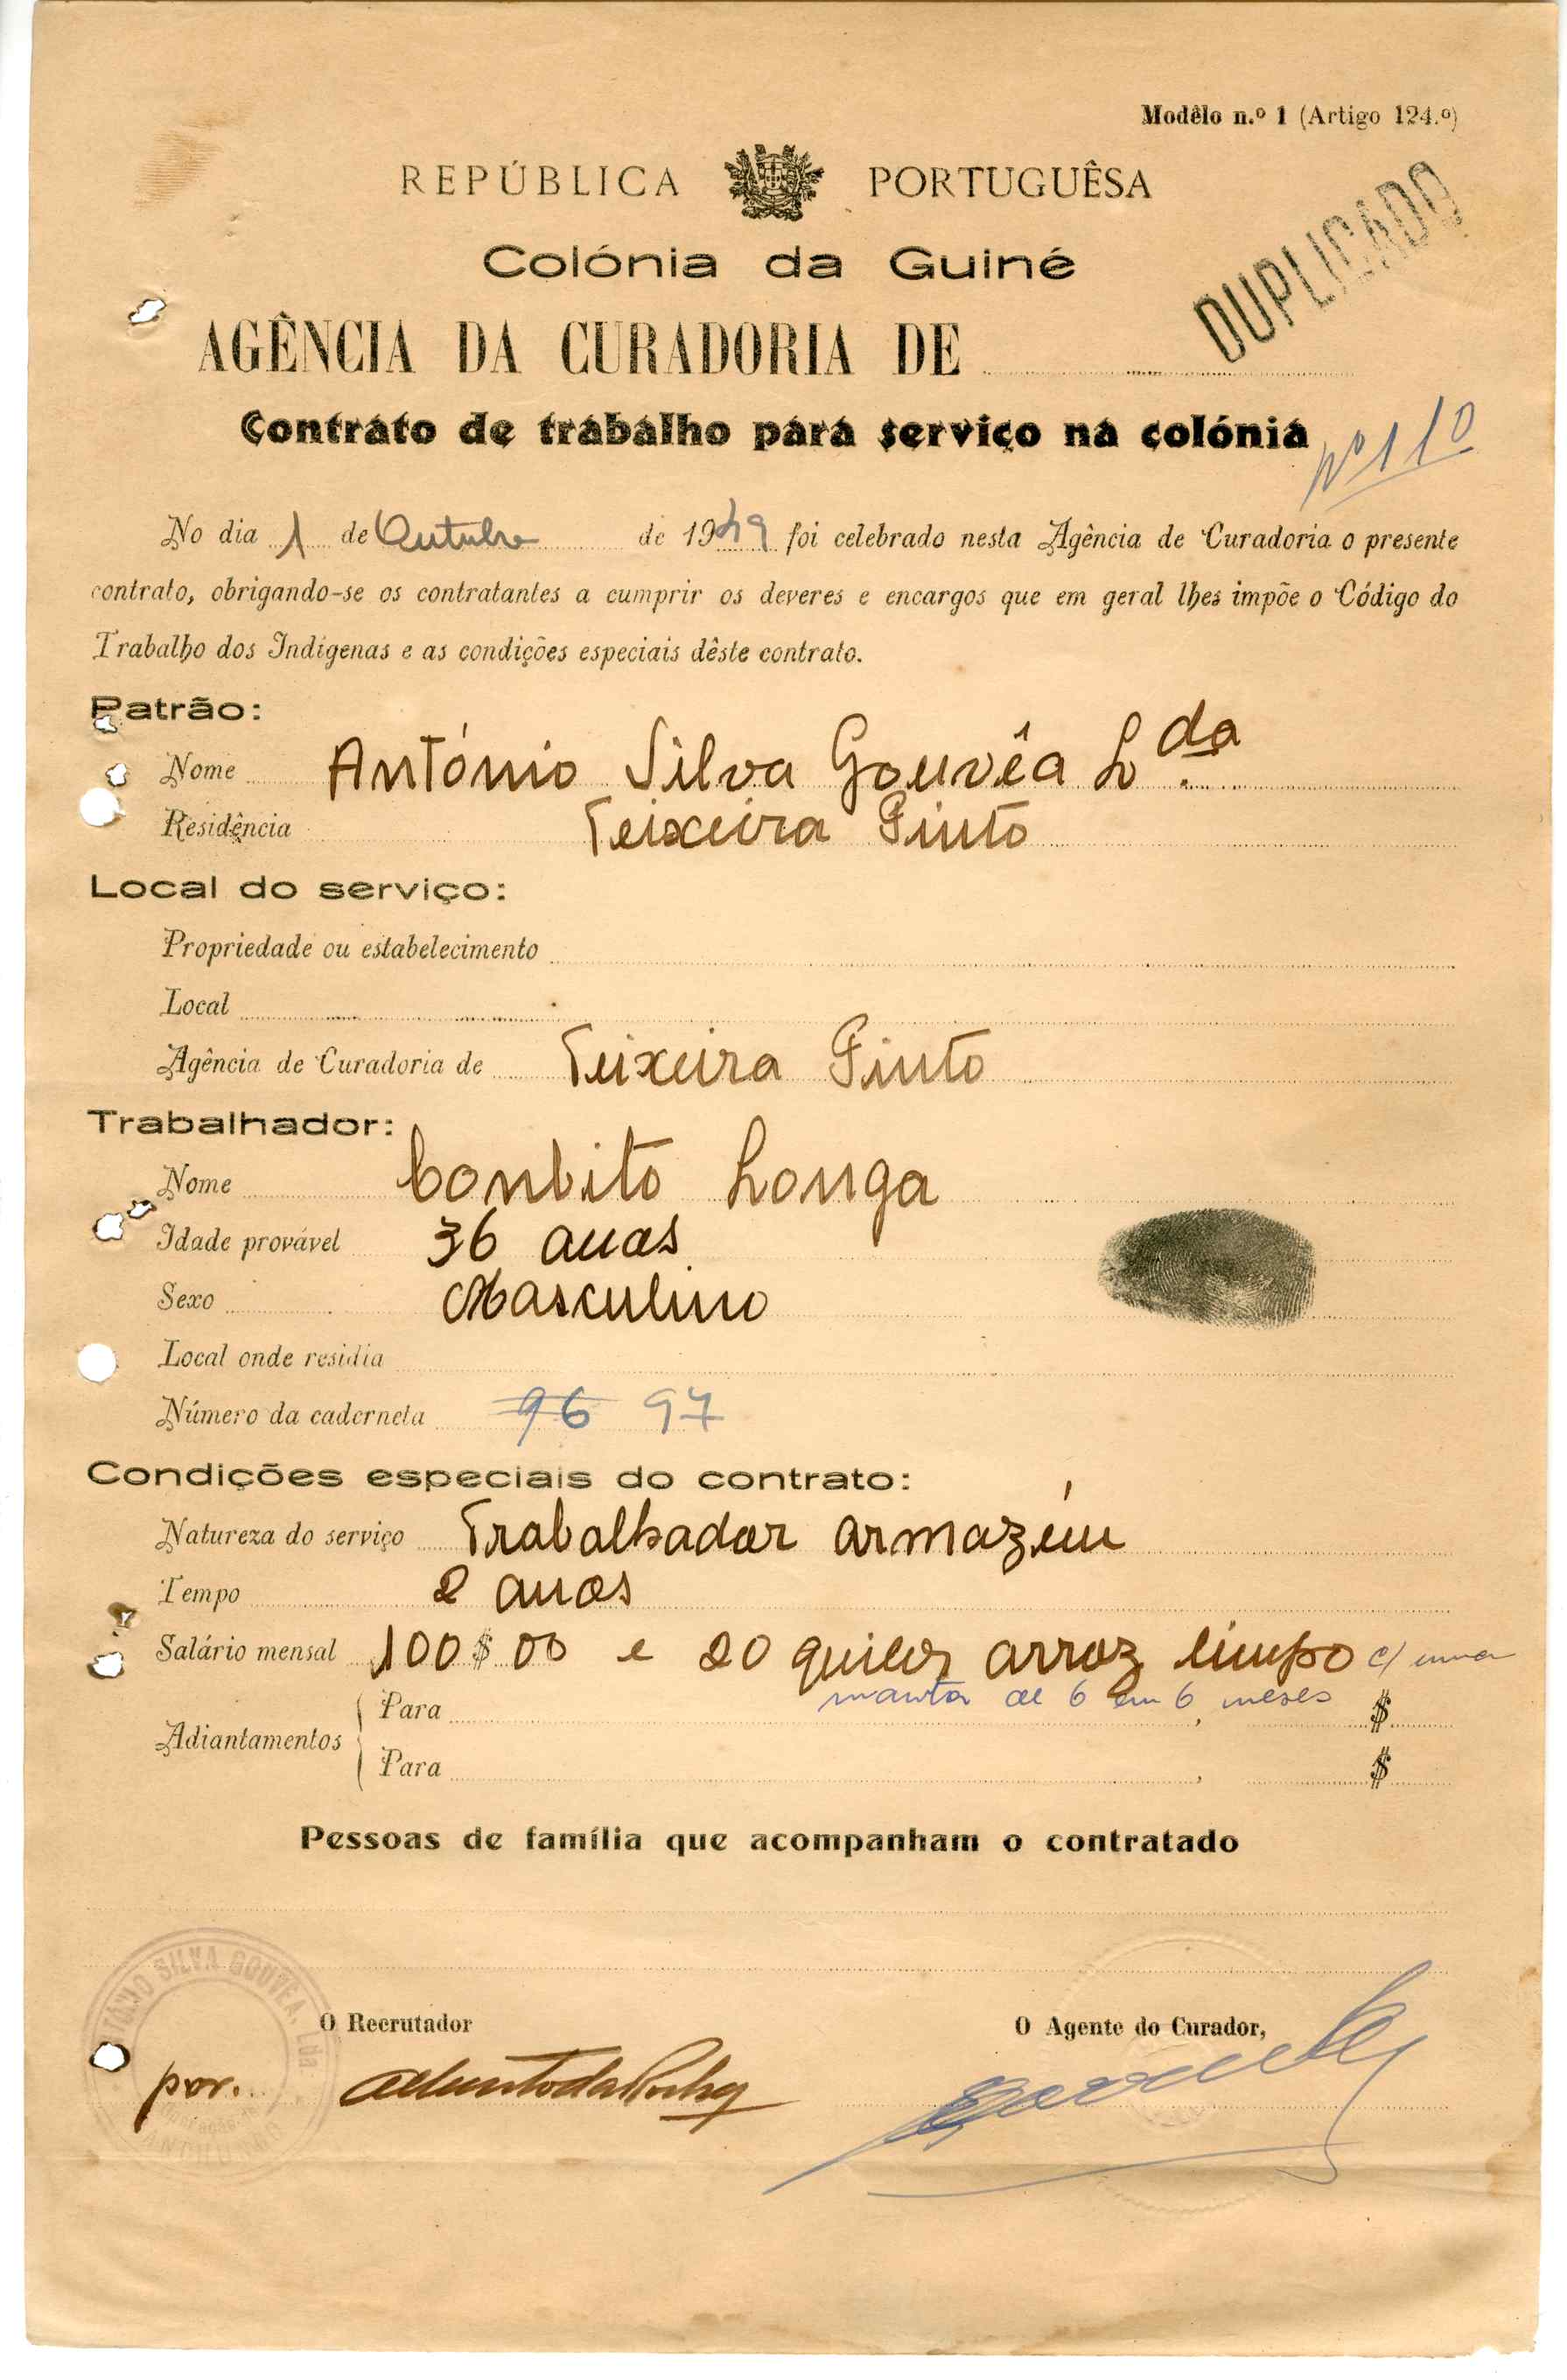 Modêlo n.º 1 (Artigo 124.º)
REPÚBLICA PORTUGUÊSA
Colónia da Guiné
DUPLICADO
AGÊNCIA DA CURADORIA DE
Contrato de trabalho para serviço na colónia
Nº 110
No dia 1 de Outubro de 1949 foi celebrado nesta Agência de Curadoria o presente
contrato, obrigando-se os contratantes a cumprir os deveres e encargos que em geral lhes impõe o Código do
Trabalho dos Indígenas e as condições especiais dêste contrato.
Patrão:
Nome António Silva Gouvêa Lda.
Residência Teixeira Pinto
Local do serviço:
Propriedade ou estabelecimento
Local
Agência de Curadoria de Teixeira Pinto
Trabalhador:
Nome Conbito Longa
Idade provável 36 anos
Sexo Masculino
Local onde residia
Número da caderneta 96 97
Condições especiais do contrato:
Natureza do serviço Trabalhador armazém
Tempo 2 anos
Salário mensal 100$00 e 20 quilos arroz limpo c/ uma
manta de 6 em 6 meses
Adiantamentos
Para , $
Para , $
Pessoas de família que acompanham o contratado
ANTÓNIO SILVA GOUVÊA, Lda
O Recrutador
O Agente do Curador,
por.